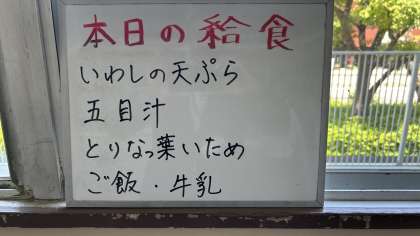 本日の給食
いわしの天ぷら
五目汁
とりなっ葉いため
ご飯・牛乳